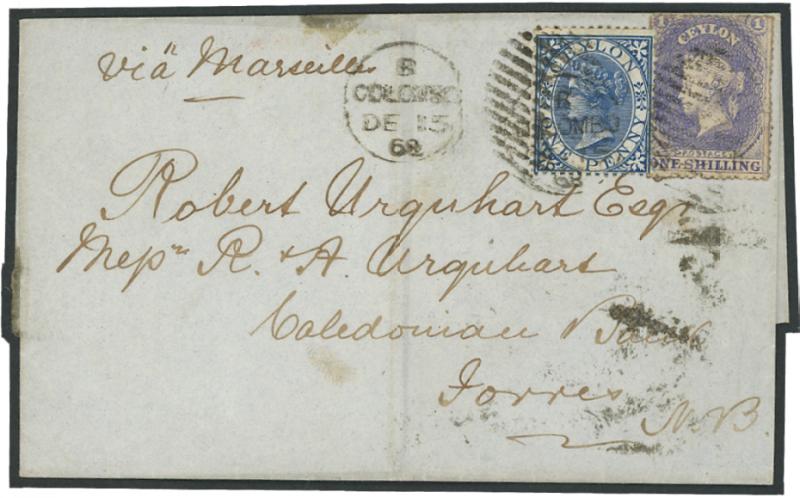 via Marseilles
B
COLOMBO
DE 15
68
CEYLON
ONE PENNY
1 CEYLON 1
POSTAGE
ONE·SHILLING
Robert Urquhart Esqr
Messrs R. & A. Urquhart
Caledonian Bank
Forres
N.B